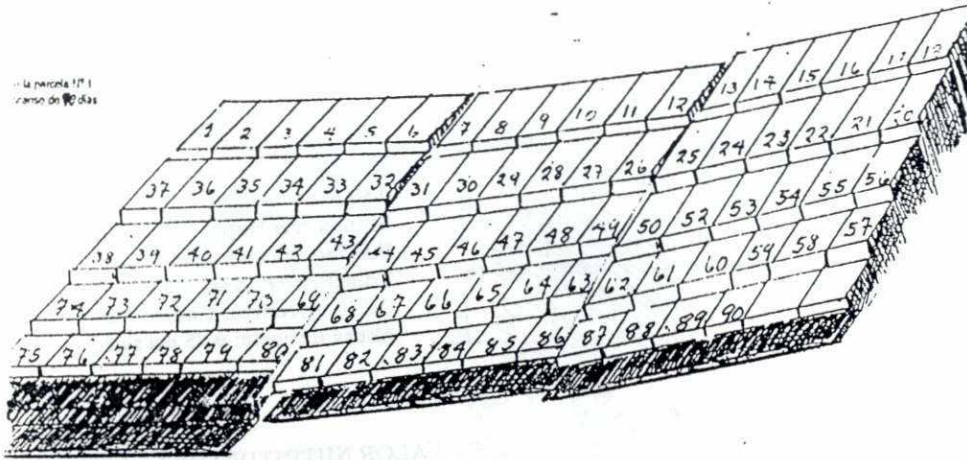 la parcela Nº 1
de 90 días
1 2 3 4 5 6 7 8 9 10 11 12 13 14 15 16 17 18
37 36 35 34 33 32 31 30 29 28 27 26 25 24 23 22 21 20
38 39 40 41 42 43 44 45 46 47 48 49 50 52 53 54 55 56
74 73 72 71 70 69 68 67 66 65 64 63 62 61 60 59 58 57
75 76 77 78 79 80 81 82 83 84 85 86 87 88 89 90